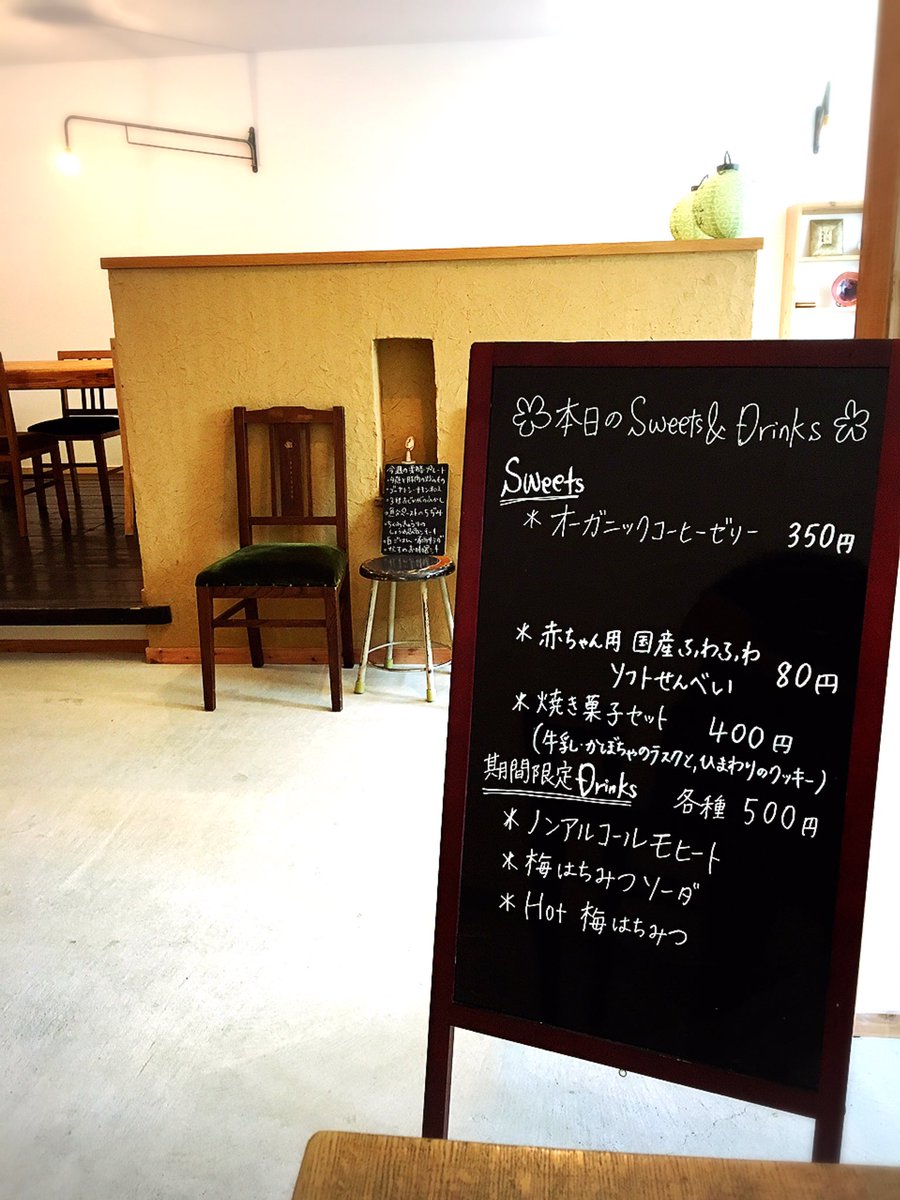 本日のSweets& Drinks
Sweets
* オーガニックコーヒーゼリー 350円
* 赤ちゃん用 国産ふわふわ
ソフトせんべい 80円
* 焼き菓子セット 400円
(牛乳・かぼちゃのラスクと、ひまわりのクッキー)
期間限定 Drinks 各種 500円
* ノンアルコールモヒート
* 梅はちみつソーダ
* Hot 梅はちみつ